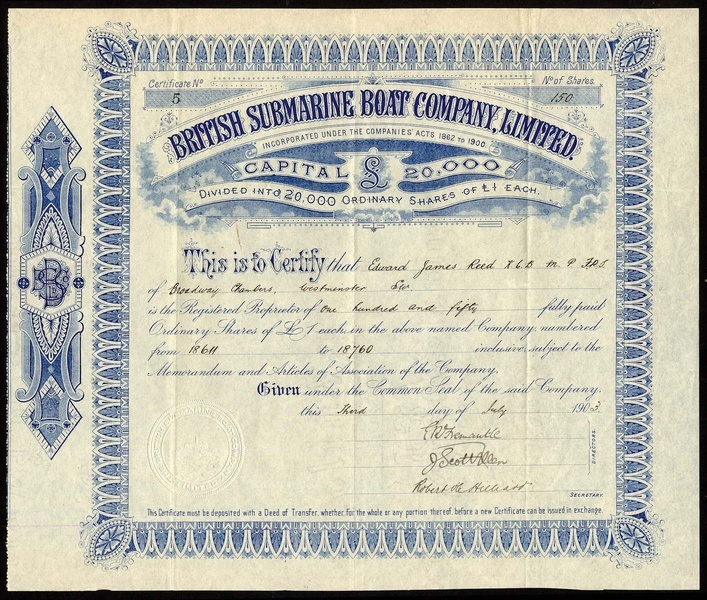 Certificate No
5
No of Shares.
150
BRITISH SUBMARINE BOAT COMPANY, LIMITED.
INCORPORATED UNDER THE COMPANIES' ACTS 1862 TO 1900.
CAPITAL £ 20,000
DIVIDED INTO 20,000 ORDINARY SHARES OF £1 EACH.
This is to Certify that Edward James Reed K C B M P F.R.S.
of Broadway Chambers, Westminster SW
is the Registered Proprietor of One hundred and fifty fully paid
Ordinary Shares of £1 each in the above named Company, numbered
from 18611 to 18760 inclusive, subject to the
Memorandum and Articles of Association of the Company.
Given under the Common Seal of the said Company
this Third day of July 1903.
E R Fremantle
J Scott
DIRECTORS.
Robert
SECRETARY.
This Certificate must be deposited with a Deed of Transfer, whether for the whole or any portion thereof, before a new Certificate can be issued in exchange.